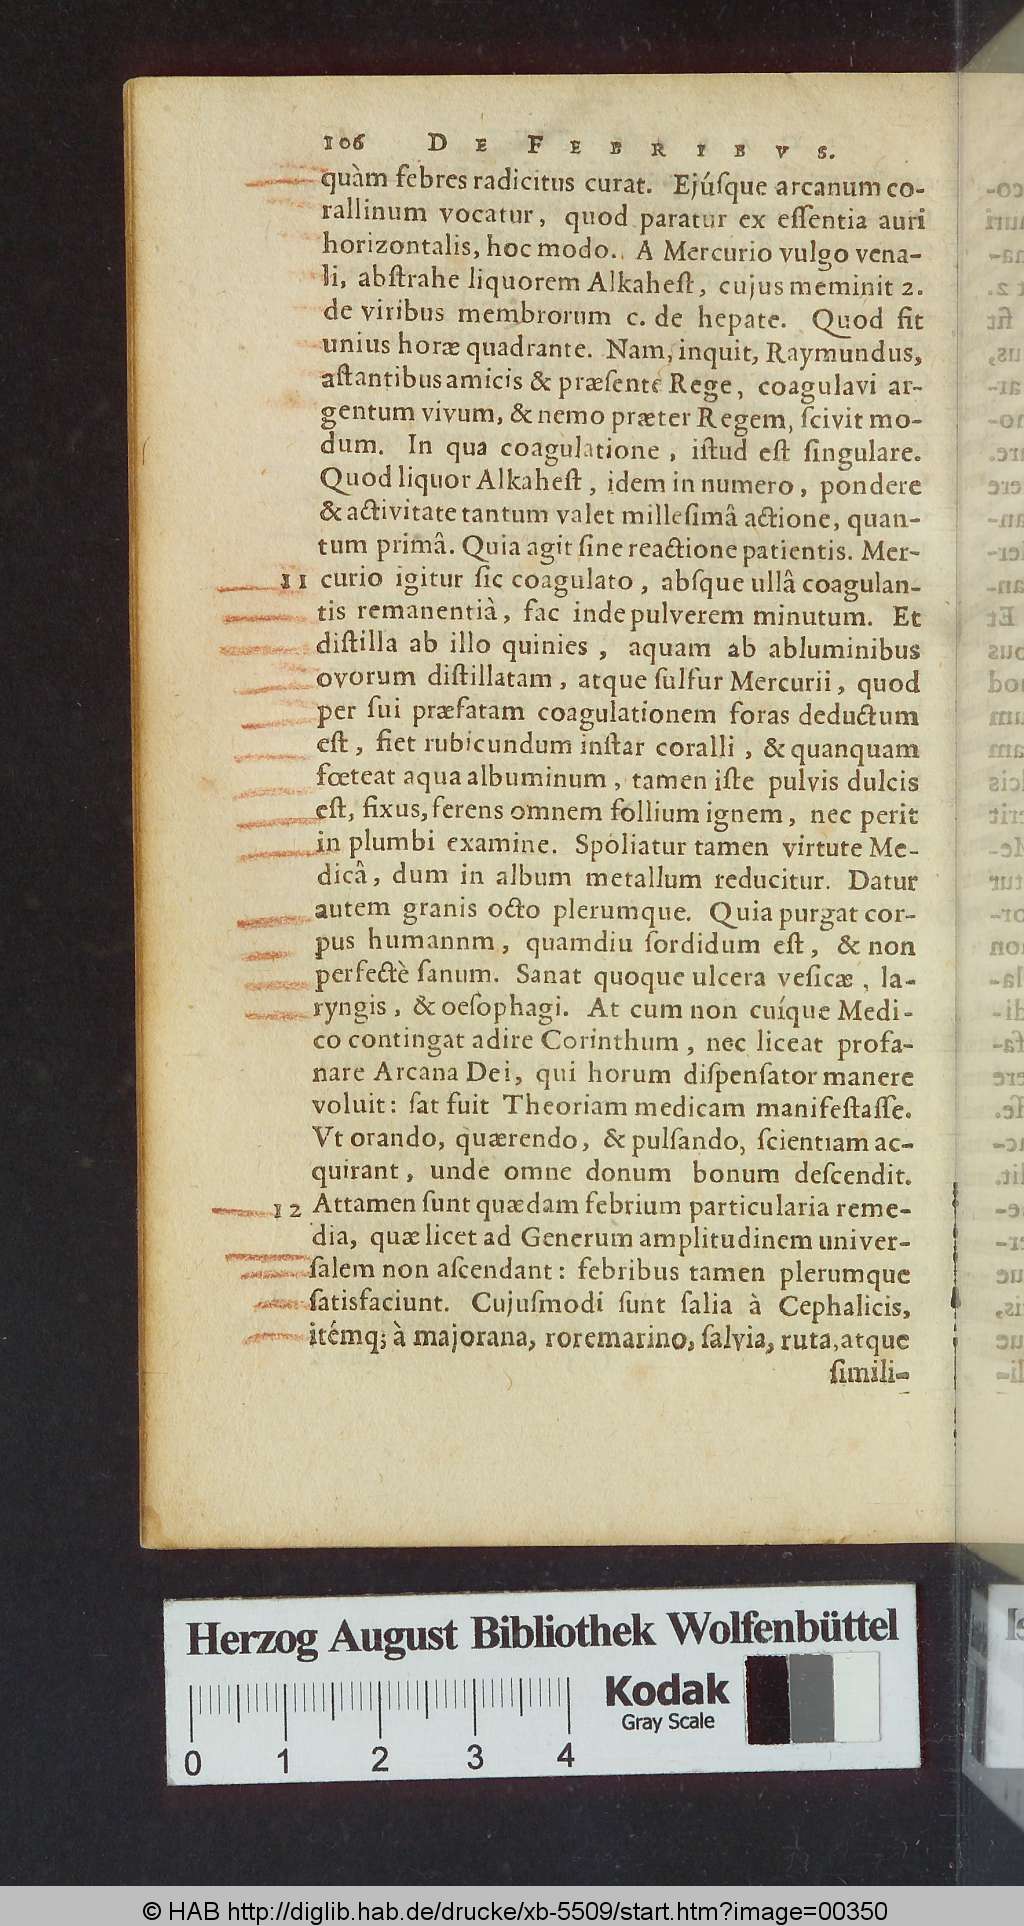 106 DE FEBRIBVS.
quàm febres radicitus curat. Ejúſque arcanum co-
rallinum vocatur, quod paratur ex eſſentia auri
horizontalis, hoc modo. A Mercurio vulgo vena-
li, abſtrahe liquorem Alkaheſt, cujus meminit 2.
de viribus membrorum c. de hepate. Quod fit
unius horæ quadrante. Nam, inquit, Raymundus,
aſtantibus amicis & præſente Rege, coagulavi ar-
gentum vivum, & nemo præter Regem, ſcivit mo-
dum. In qua coagulatione, iſtud eſt ſingulare.
Quod liquor Alkaheſt, idem in numero, pondere
& activitate tantum valet milleſimâ actione, quan-
tum primâ. Quia agit ſine reactione patientis. Mer-
11 curio igitur ſic coagulato, abſque ullâ coagulan-
tis remanentiâ, fac inde pulverem minutum. Et
diſtilla ab illo quinies, aquam ab abluminibus
ovorum diſtillatam, atque ſulfur Mercurii, quod
per ſui præfatam coagulationem foras deductum
eſt, fiet rubicundum inſtar coralli, & quanquam
fœteat aqua albuminum, tamen iſte pulvis dulcis
eſt, fixus, ferens omnem follium ignem, nec perit
in plumbi examine. Spoliatur tamen virtute Me-
dicâ, dum in album metallum reducitur. Datur
autem granis octo plerumque. Quia purgat cor-
pus humannm, quamdiu ſordidum eſt, & non
perfectè ſanum. Sanat quoque ulcera veſicæ, la-
ryngis, & oeſophagi. At cum non cuíque Medi-
co contingat adire Corinthum, nec liceat profa-
nare Arcana Dei, qui horum diſpenſator manere
voluit: ſat fuit Theoriam medicam manifeſtaſſe.
Vt orando, quærendo, & pulſando, ſcientiam ac-
quirant, unde omne donum bonum deſcendit.
12 Attamen ſunt quædam febrium particularia reme-
dia, quæ licet ad Generum amplitudinem univer-
ſalem non aſcendant: febribus tamen plerumque
ſatisfaciunt. Cujuſmodi ſunt ſalia à Cephalicis,
itémq; à majorana, roremarino, ſalvia, ruta, atque
ſimili-
Herzog August Bibliothek Wolfenbüttel
Kodak
Gray Scale
0 1 2 3 4
© HAB http://diglib.hab.de/drucke/xb-5509/start.htm?image=00350